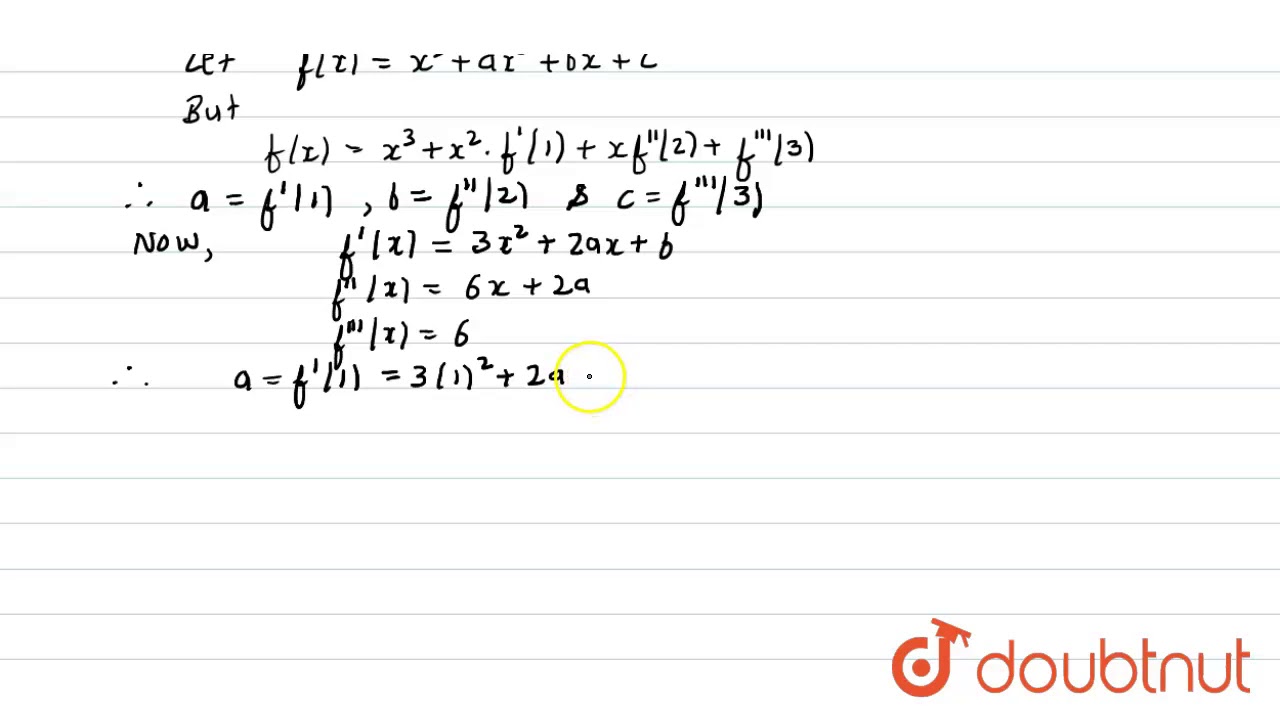 Let f(x) = x³ + ax² + bx + c
But
f(x) = x³ + x² · f'(1) + x f''(2) + f'''(3)
∴ a = f'(1) , b = f''(2) & c = f'''(3)
Now, f'(x) = 3x² + 2ax + b
f''(x) = 6x + 2a
f'''(x) = 6
∴ a = f'(1) = 3(1)² + 2a
doubtnut